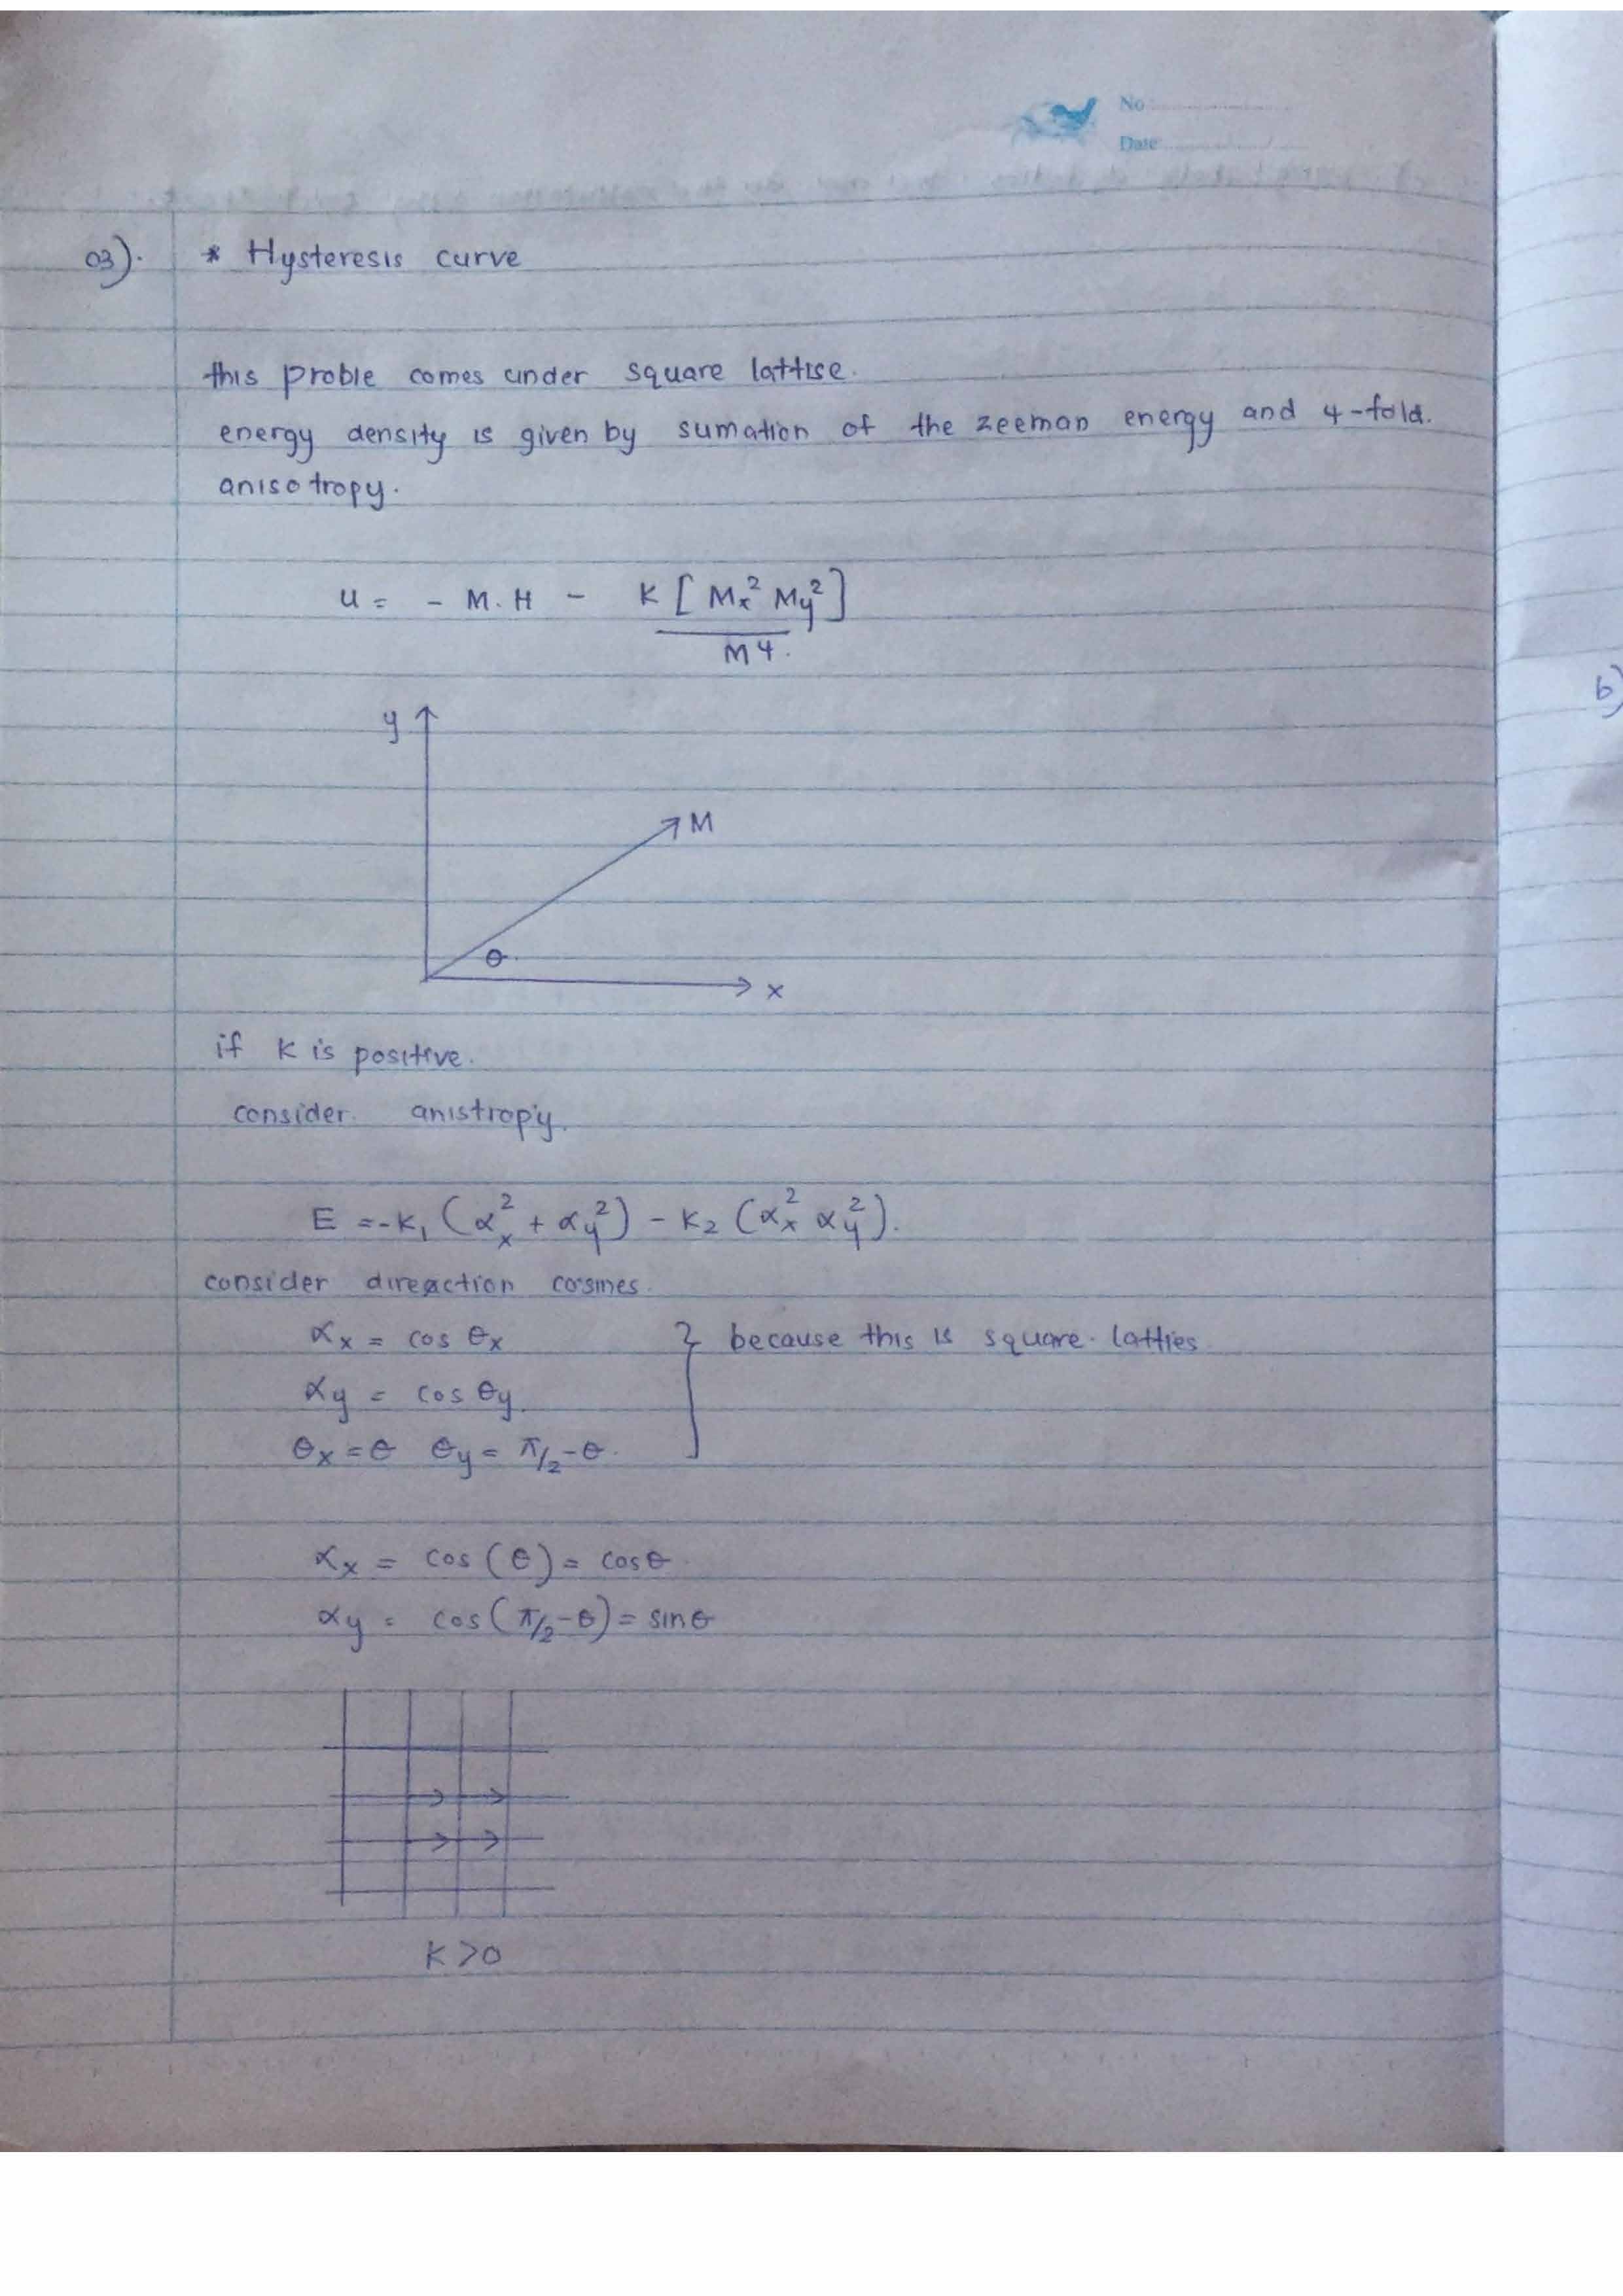 No
Date
03). * Hysteresis curve
this proble comes under square lattise.
energy density is given by sumation of the zeeman energy and 4-fold.
anisotropy.
u = - M.H - K [Mx² My²] / M4.
y
M
θ
x
if K is positive.
consider. anistropy.
E = -K₁ (αx² + αy²) - K₂ (αx² αy²).
consider direaction cosines.
αx = cos θx } because this is square. latties
αy = cos θy.
θx = θ θy = π/2 - θ.
αx = cos (θ) = cosθ.
αy = cos (π/2 - θ) = sinθ
K > 0
b)